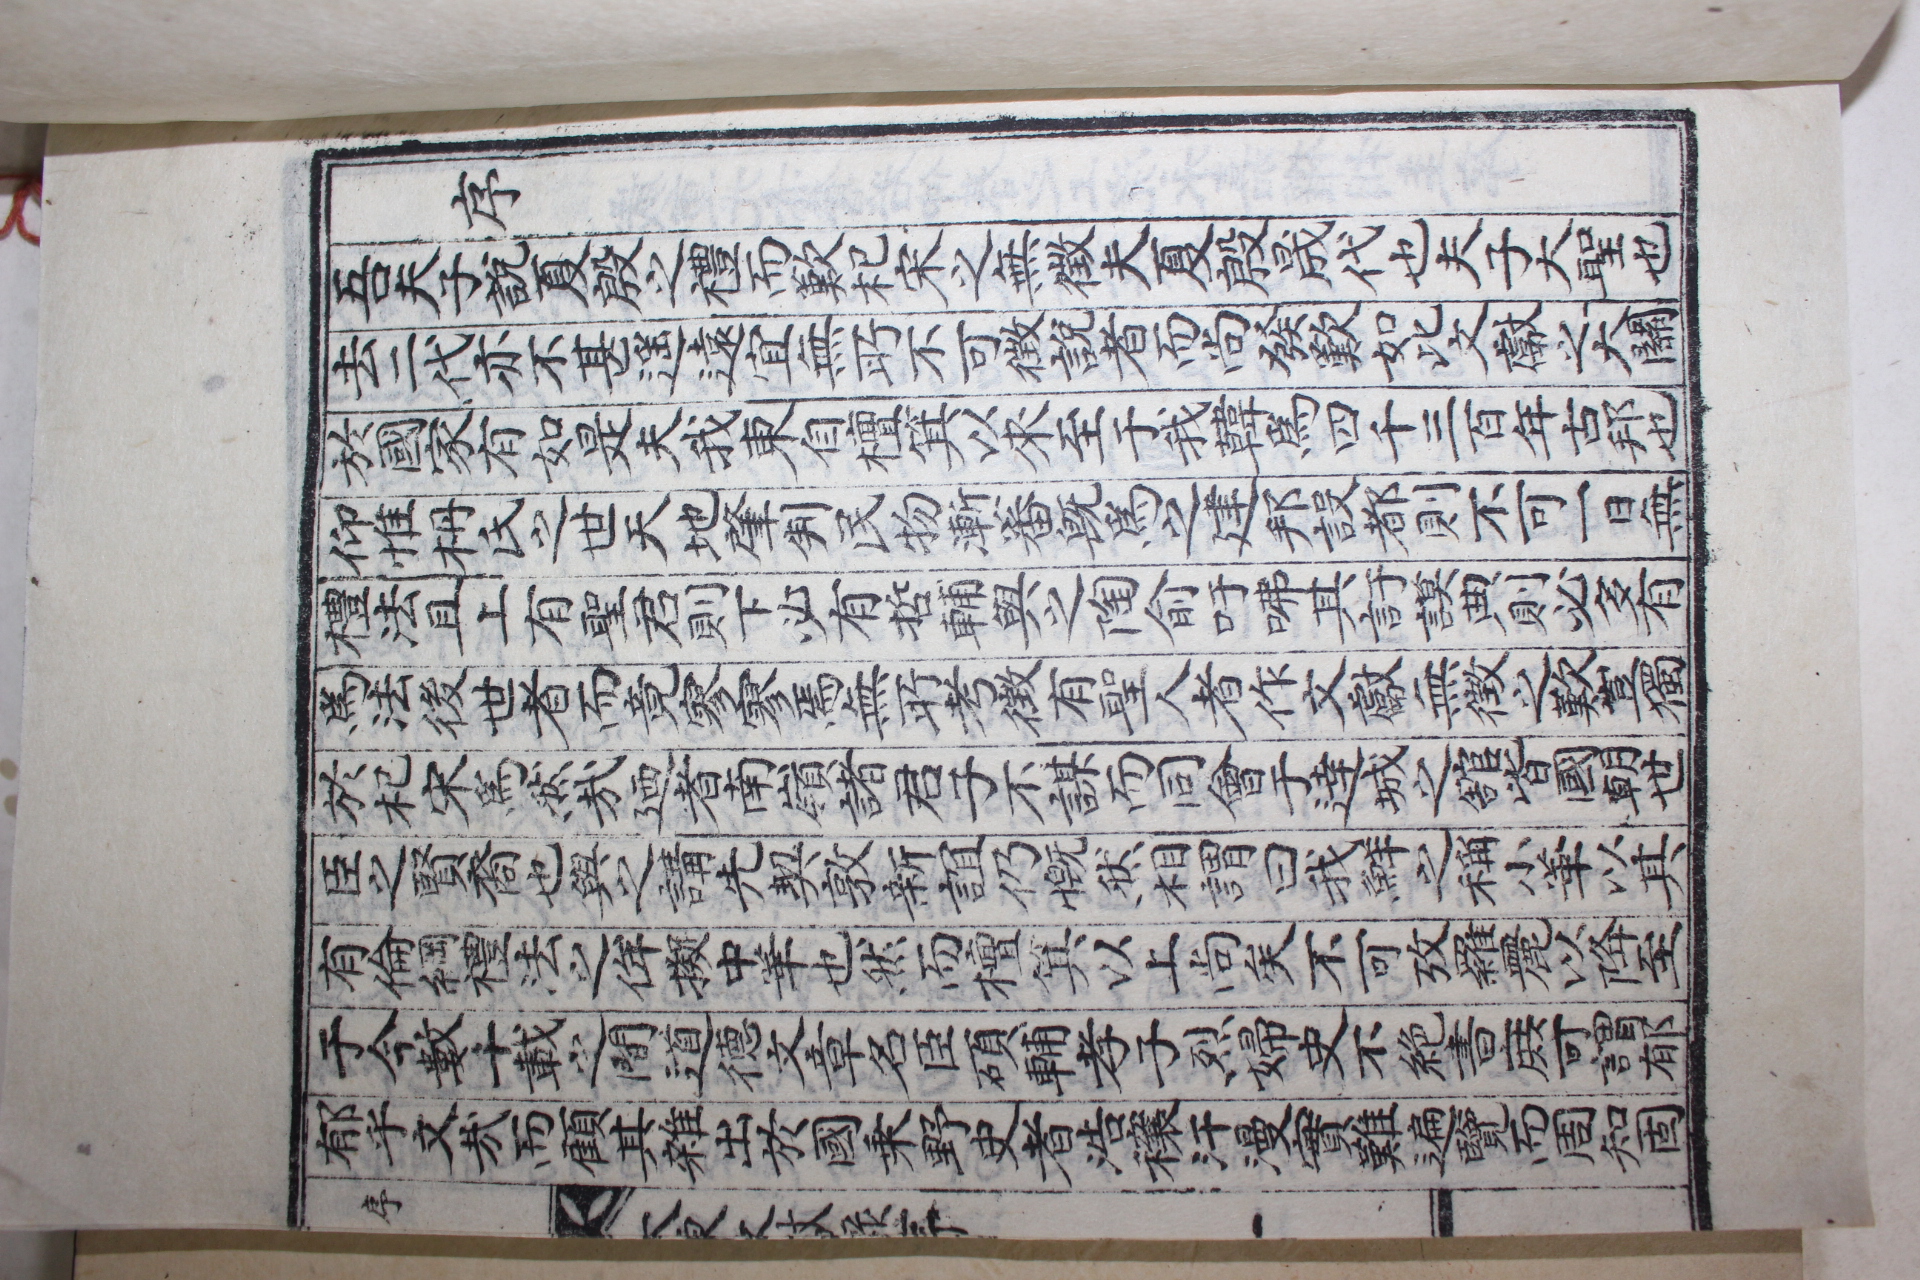 序
吾夫子說夏殷之禮而歎杞宋之無徵夫夏殷晟代也夫子大聖也
去二代亦不甚遥遠宜無所不可徵說者而尚發歎如此文獻之大關
於國家有如是夫我東自檀箕以來至于我韓爲四千三百年古邦也
仰惟檀氏之世天地肇判民物漸蕃旣爲之建邦設都則不可一日無
禮法且上有聖君則下必有哲輔與之陶俞吁咈其訏謨典則必多有
爲法後世者而竟寥寥焉無所考徵有聖人者作文獻無徵之歎豈獨
於杞宋爲然哉迺者南嶺諸君子不謀而同會于達城之舘皆國朝世
臣之賢裔也與之講先契敦新誼仍慨然相謂曰我鮮之稱小華以其
有倫綱禮法之侔擬中華也然而檀箕以上尚矣不可攷羅麗以降至
于今數千載之間道德文章名臣碩輔孝子烈婦史不絶書庶可謂郁
郁乎文哉而顧其雜出於國乘野史者浩穰汗漫實難遍覽而周知固
序
大東文獻錄序